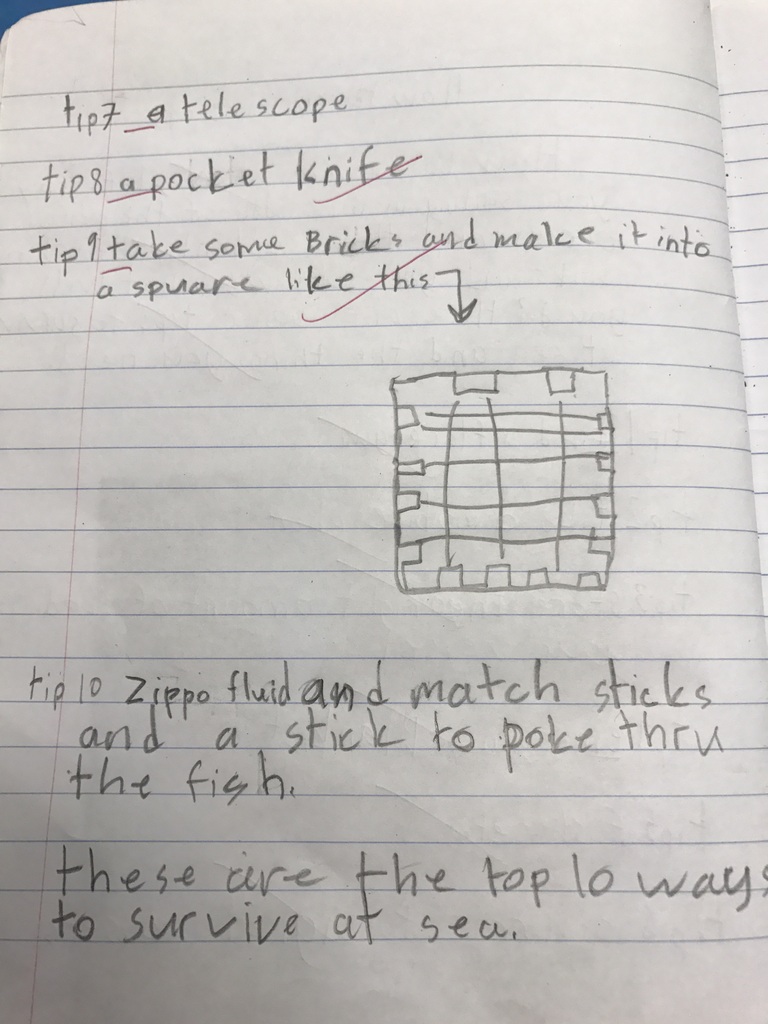 tip7 a telescope
tip8 a pocket knife
tip9 take some Bricks and make it into
a spuare like this
tip10 Zippo fluid and match sticks
and a stick to poke thru
the fish.
these are the top 10 ways
to survive at sea.